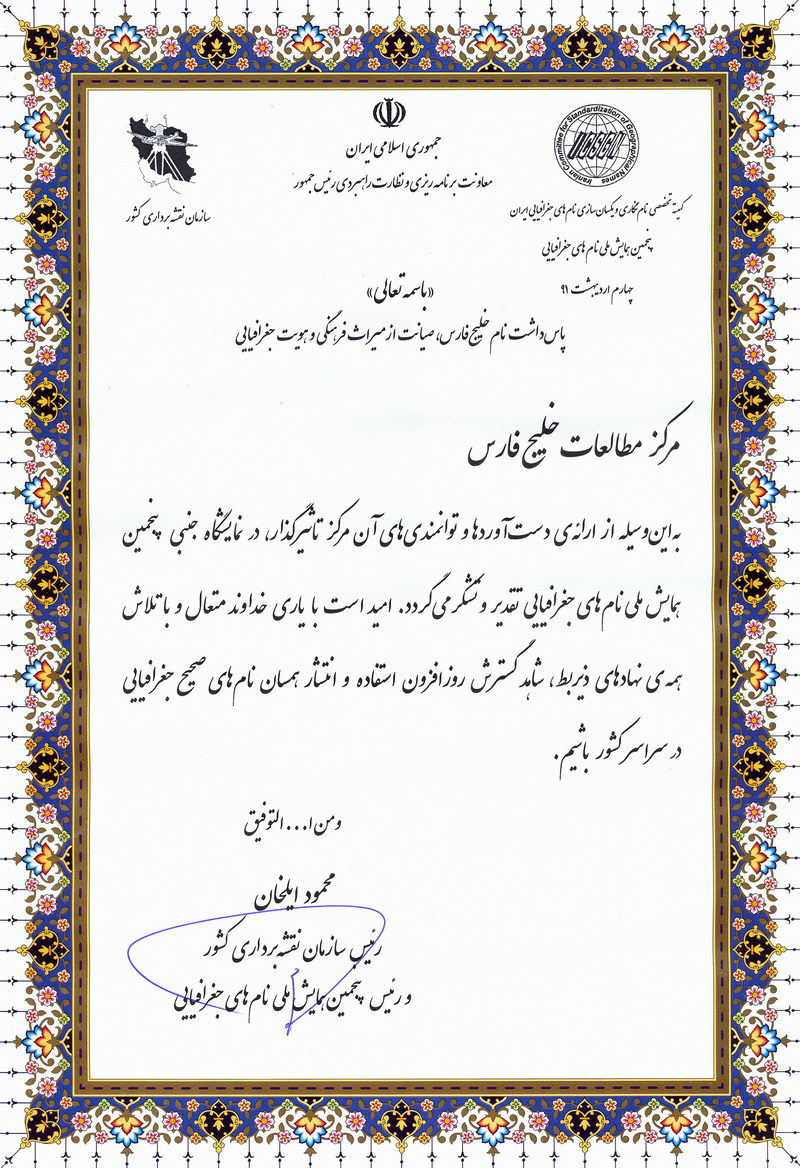 جمهوری اسلامی ایران
معاونت برنامه‌ریزی و نظارت راهبردی رئیس جمهور
Iranian Committee for Standardization of Geographical Names
کمیته تخصصی نام‌نگاری و یکسان‌سازی نام‌های جغرافیایی ایران
پنجمین همایش ملی نام‌های جغرافیایی
چهارم اردیبهشت ۹۱
سازمان نقشه‌برداری کشور
«باسمه تعالی»
پاس‌داشت نام خلیج فارس، صیانت از میراث فرهنگی و هویت جغرافیایی
مرکز مطالعات خلیج فارس
به‌این‌وسیله از ارائه‌ی دست‌آوردها و توانمندی‌های آن مرکز تاثیرگذار، در نمایشگاه جنبی پنجمین
همایش ملی نام‌های جغرافیایی تقدیر و تشکر می‌گردد. امید است با یاری خداوند متعال و با تلاش
همه‌ی نهادهای ذیربط، شاهد گسترش روزافزون استفاده و انتشار همسان نام‌های صحیح جغرافیایی
در سراسر کشور باشیم.
ومن ا... التوفیق
محمود ایلخان
رئیس سازمان نقشه‌برداری کشور
و رئیس پنجمین همایش ملی نام‌های جغرافیایی